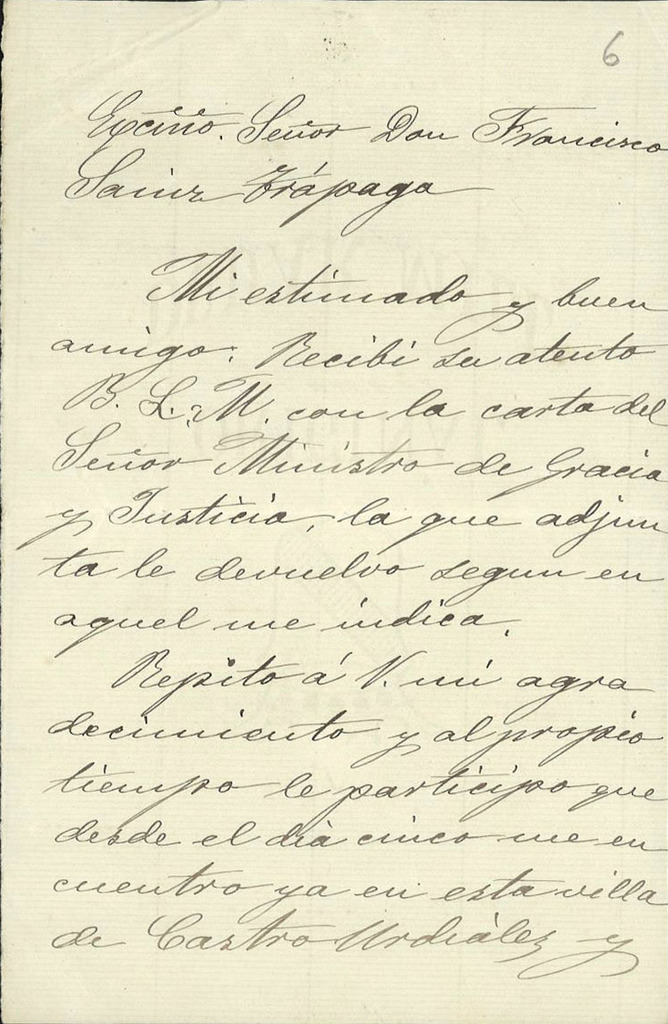 6
Excmo. Señor Don Francisco
Sainz Trápaga
Mi estimado y buen
amigo: Recibí su atento
B. L. M. con la carta del
Señor Ministro de Gracia
y Justicia, la que adjun
ta le devuelvo segun en
aquel me indica.
Repito á V. mi agra
decimiento y al propio
tiempo le participo que
desde el día cinco me en
cuentro ya en esta villa
de Castro Urdiález y